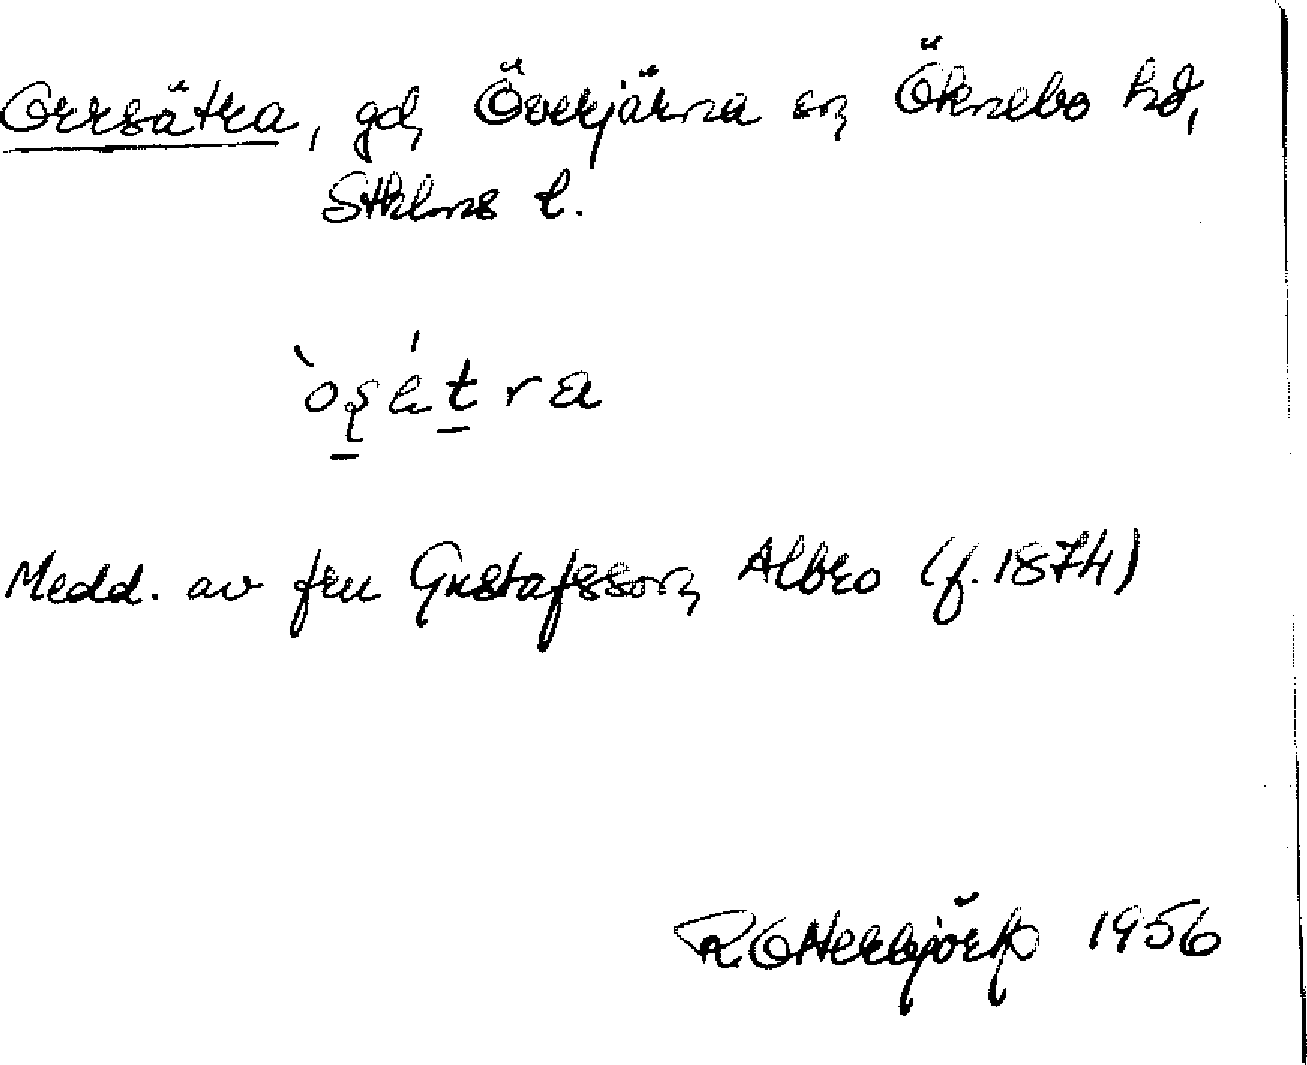 Orrsätra, gd, Överjärna sn, Öknebo hd,
Sthlms l.
Medd. av fru Gustafsson, Albro (f. 1874)
R Otterbjörk 1956